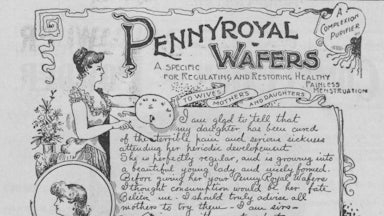 PENNYROYAL
WAFERS
A COMPLEXION
PURIFIER
A SPECIFIC
FOR REGULATING AND RESTORING HEALTHY
PAINLESS
MENSTRUATION
TO WIVES MOTHERS AND DAUGHTERS
I am glad to tell that
my daughter has been cured
of the terrible pain and serious sickness
attending her periodic development.
She is perfectly regular, and is growing into
a beautiful young lady and nicely formed.
Before using her your PennyRoyal Wafers
I thought consumption would be her fate.
Believe me - I should truly advise all
mothers to try them - I am